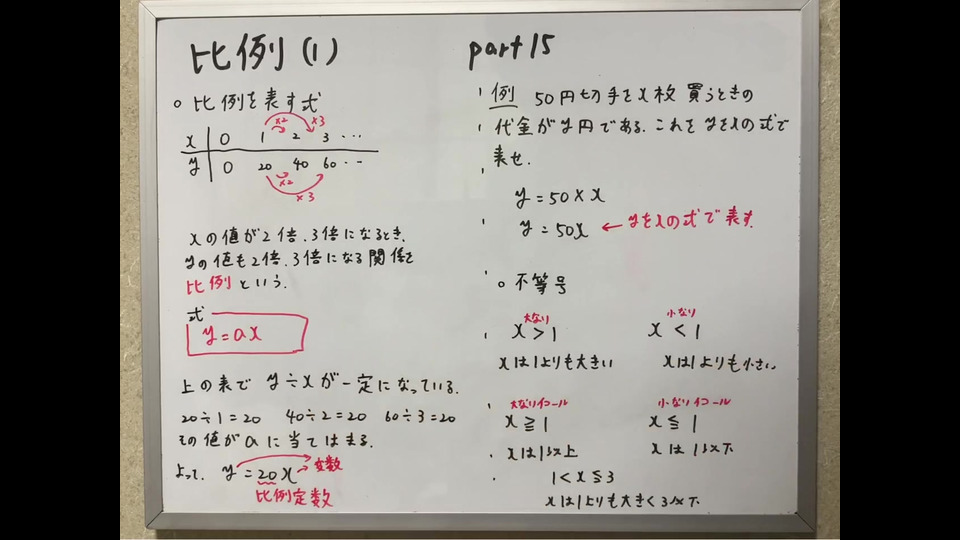 比例(1)
○ 比例を表す式
×2 ×3
x 0 1 2 3 ...
y 0 20 40 60 ...
×2
×3
xの値が2倍、3倍になるとき、
yの値も2倍、3倍になる関係を
比例という.
式
y=ax
上の表で y÷xが一定になっている.
20÷1=20 40÷2=20 60÷3=20
その値がaに当てはまる.
よって、 y=20x 変数
比例定数
part15
例 50円切手をx枚買うときの
代金がy円である. これをyをxの式で
表せ.
y=50×x
y=50x ← yをxの式で表す.
○ 不等号
大なり 小なり
x>1 x<1
xは1よりも大きい xは1よりも小さい
大なりイコール 小なりイコール
x≧1 x≦1
xは1以上 xは1以下
1<x≦3
xは1よりも大きく3以下